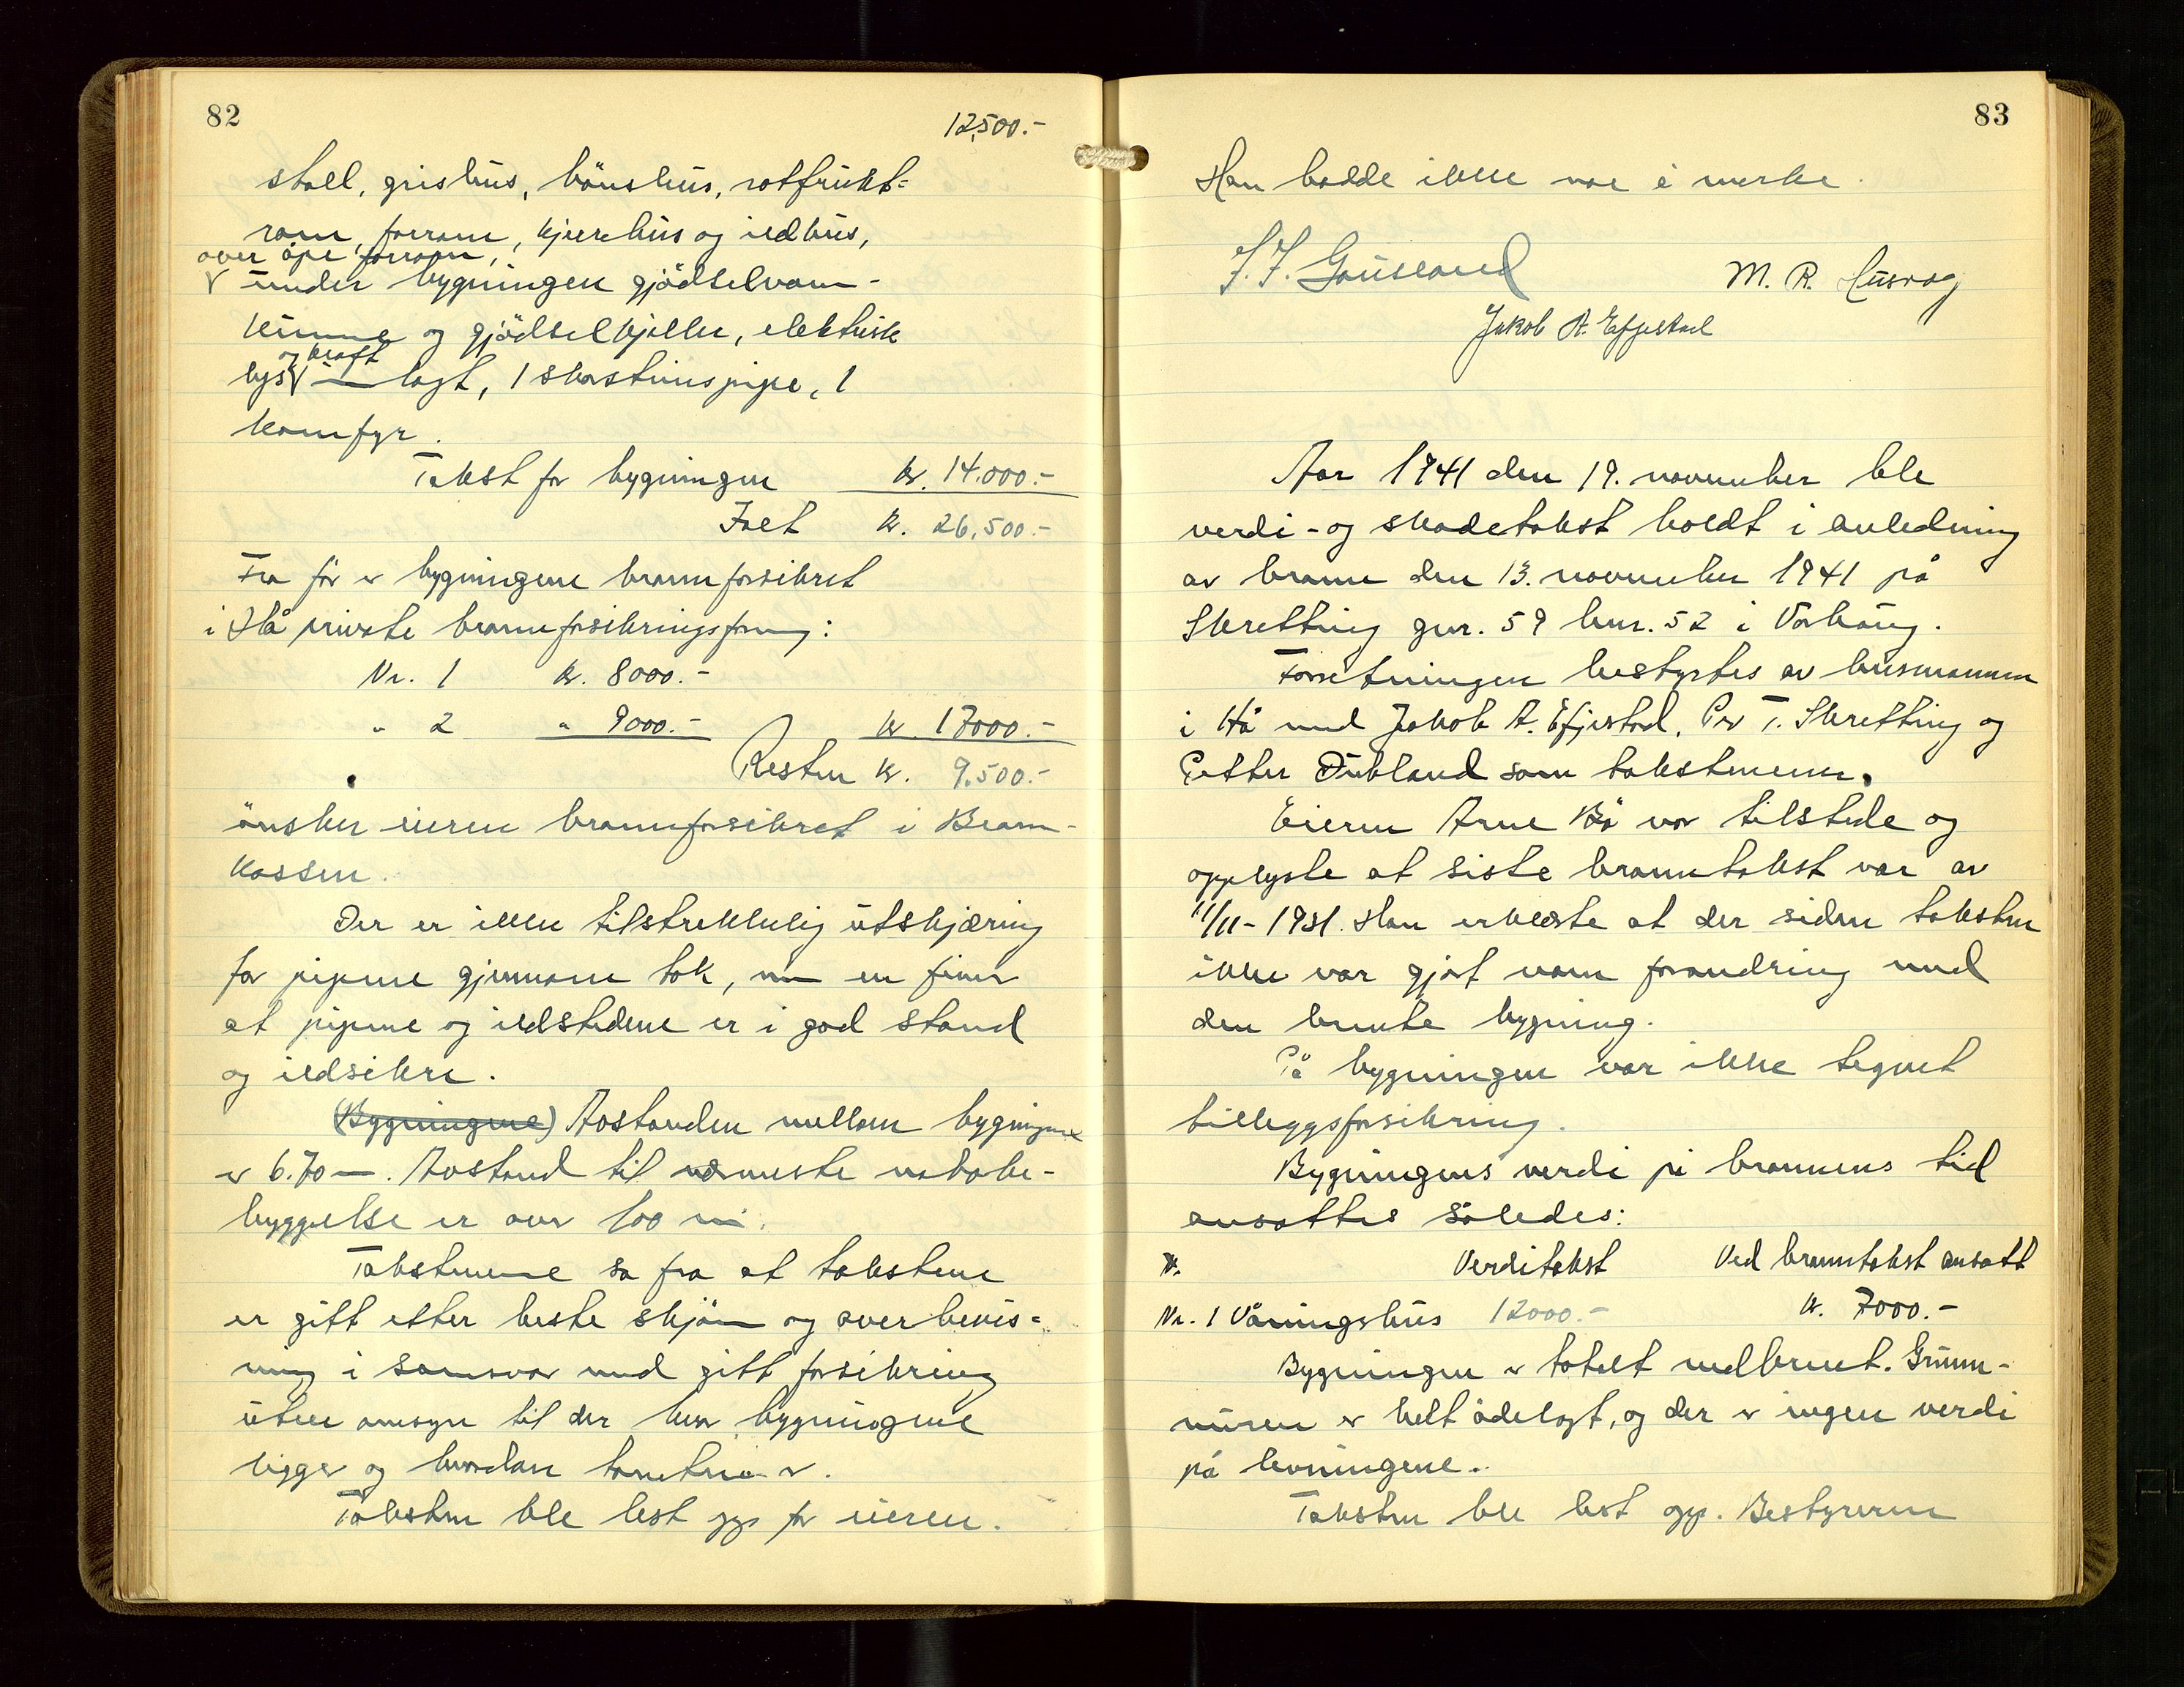 82
12,500.-
stall, grishus, hönshus, rotfrukt=
rom, forrom, kjerrehus og ildhus,
over åpe forrom,
V under bygningen gjödselvann-
kumme og gjödselkjeller, elektrisk
og kraft
lysV innlagt, 1 skorsteinspipe, 1
komfyr.
Takst for bygningen kr. 14.000.-
Ialt kr. 26,500.-
Fra för er bygningene brannforsikret
i Hå private brannforsikringsforng:
Nr. 1 kr. 8000.-
" 2 " 9000.- kr 17000.-
Resten kr. 9.500.-
önsker eieren brannforsikret i Brann-
kassen.
Der er ikke tilstrekkelig utskjæring
for pipene gjennom tak, men en finner
at pipene og ildstedene er i god stand
og ildsikre.
(Bygningene) Avstanden mellom bygningene
er 6.70 m. Avstand til nærmeste nabobe-
byggelse er over 100 m.
Takstmennene sa fra at takstene
er gitt etter beste skjönn og overbevis=
ning i samsvar med gitt forsikring
uten omsyn til der hvor bygningene
ligger og hvordan tomtene er.
Taksten ble lest opp for eieren.
83
Han hadde ikke noe å merke.
M. R. Husvog
Jakob A. Efjestad
Aar 1941 den 19. november ble
verdi- og skadetakst holdt i anledning
av brann den 13. november 1941 på
Skretting gnr. 59 bnr. 52 i Varhaug.
Forretningen bestyrtes av lensmannen
i Hå med Jakob A. Efjestad, Per T. Skretting og
Petter Dubland som takstmenn.
Eieren Arne Bö var tilstede og
opplyste at siste branntakst var av
11/11-1931. Han erklærte at der siden taksten
ikke var gjort noen forandring med
den brente bygning.
På bygningen var ikke tegnet
tilleggsforsikring.
Bygningens verdi på brannens tid
ansattes således:
Verditakst Ved branntakst ansatt
Nr. 1 Våningshus 12000.- kr. 7000.-
Bygningen er totalt nedbrent. Grunn-
muren er helt ödelagt, og der er ingen verdi
på levningene.
Taksten ble lest opp. Bestyreren